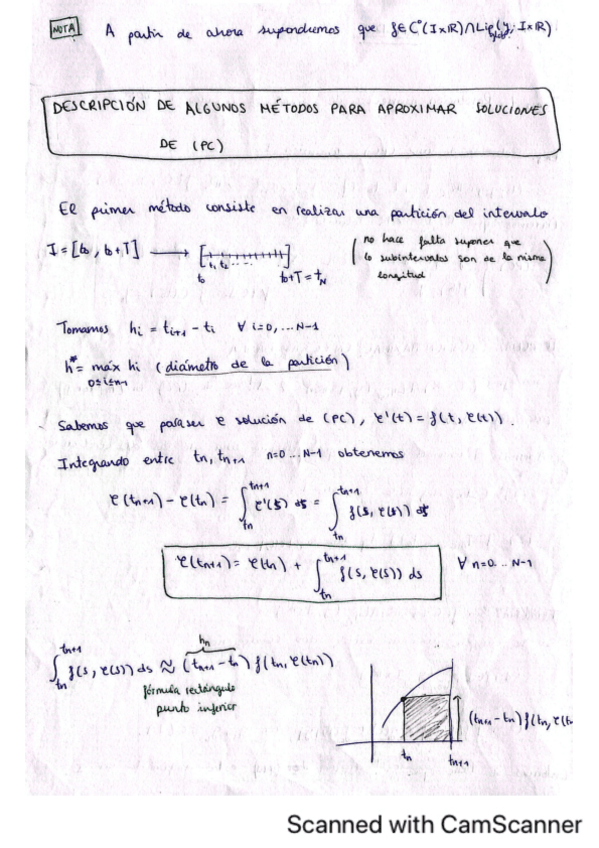 NOTA A partir de ahora supondremos que f ∈ C°(I×ℝ) ∩ Lip(y; I×ℝ)
DESCRIPCIÓN DE ALGUNOS MÉTODOS PARA APROXIMAR SOLUCIONES
DE (PC)
El primer método consiste en realizar una partición del intervalo
I = [t₀, t₀+T] ⟶ [ t₁ t₂ ..... ]
t₀ t₀+T = t_N
(no hace falta suponer que
lo subintervalos son de la misma
longitud)
Tomamos hᵢ = tᵢ₊₁ - tᵢ ∀ i=0,... N-1
h* = máx hᵢ (diámetro de la partición)
0≤i≤n-1
Sabemos que para ser φ solución de (PC), φ'(t) = f(t, φ(t)).
Integrando entre tn, tn+1 n=0...N-1 obtenemos
φ(tn+1) - φ(tn) = ∫_{tn}^{tn+1} φ'(s) ds = ∫_{tn}^{tn+1} f(s, φ(s)) ds
φ(tn+1) = φ(tn) + ∫_{tn}^{tn+1} f(s, φ(s)) ds ∀ n=0...N-1
hn
∫_{tn}^{tn+1} f(s, φ(s)) ds ≈ (tn+1 - tn) f(tn, φ(tn))
fórmula rectángulo
punto inferior
(tn+1 - tn) f(tn, φ(tn
tn tn+1
Scanned with CamScanner